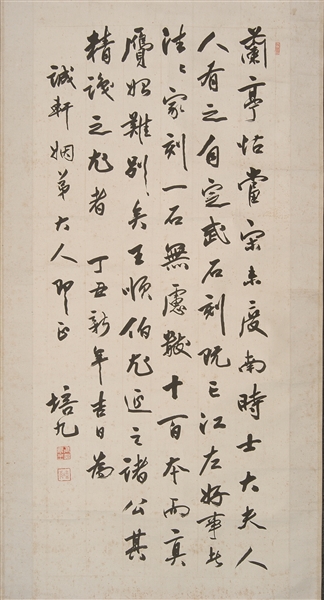 蘭亭帖當宋未度南時士大夫人
人有之自定武石刻既亡江左好事者
往往家刻一石無慮數十百本而真
贋始難別矣王順伯尤延之諸公其
精識之尤者 丁丑新年吉日為
誠軒姻弟大人即正 培九